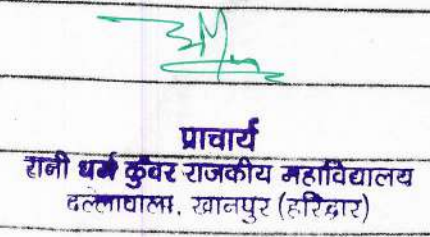 प्राचार्य
रानी धर्म कुंवर राजकीय महाविद्यालय
दल्लावाला, खानपुर (हरिद्वार)